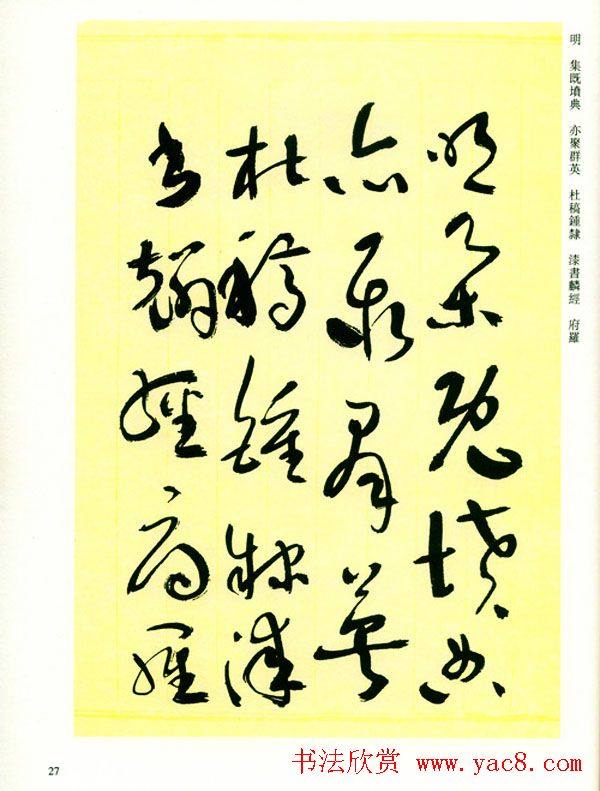 明 集既墳典 亦聚群英 杜稿鍾隸 漆書麟經 府羅
明集既墳典
亦聚群英
杜稿鍾隸漆
書經府羅
27
书法欣赏 www.yac8.com